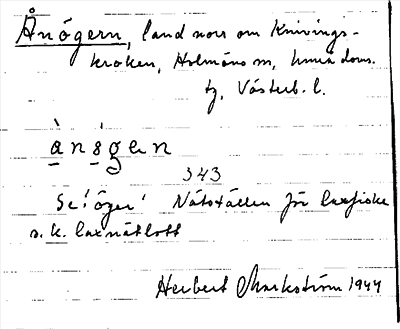 Ånögern, land norr om Knivings-
kroken, Holmöns sn, Umeå doms.
tg, Västerb. l.
ànǿgen
343
Se 'öger' Nätställen för laxfiske
s. k. laxnätlott
Herbert Markström 1944